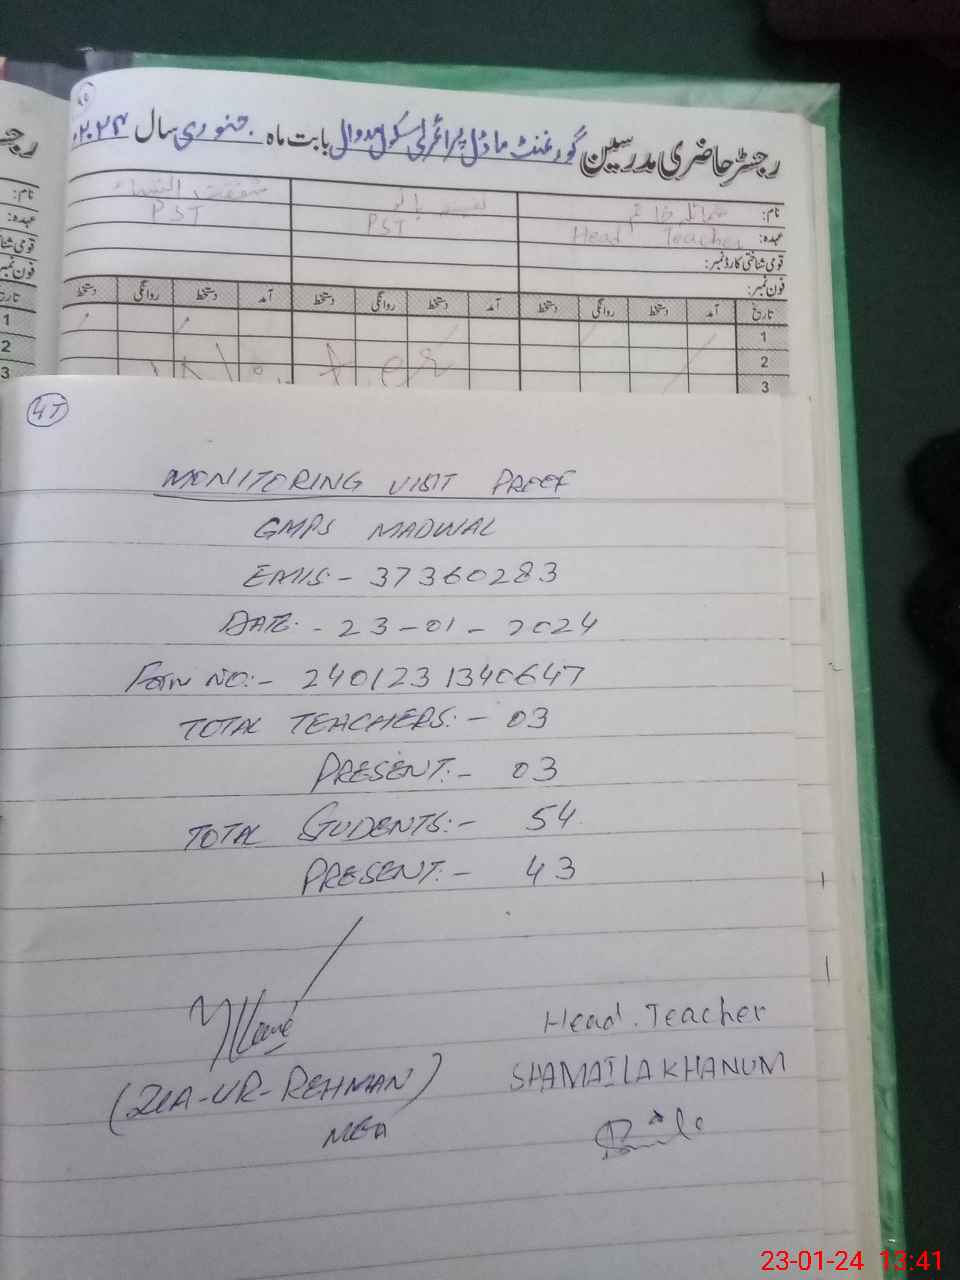 رجسٹر حاضری مدرسین گورنمنٹ ماڈل پرائمری سکول مدوال بابت ماہ جنوری سال ۲۰۲۴ء
نام: شمائلہ خانم
عہدہ: Head Teacher PST PST
قومی شناختی کارڈ نمبر:
فون نمبر:
تاریخ آمد دستخط روانگی دستخط آمد دستخط روانگی دستخط آمد دستخط روانگی دستخط
1
2
3
نام:
عہدہ:
1
2
3
MONITORING VISIT PROOF
GMPS MADWAL
EMIS:- 37360283
DATE:- 23-01-2024
FORM NO:- 240123 1340647
TOTAL TEACHERS:- 03
PRESENT:- 03
TOTAL STUDENTS:- 54
PRESENT:- 43
(ZIA-UR-REHMAN)
MEA
Head. Teacher
SHAMAILA KHANUM
23-01-24 13:41